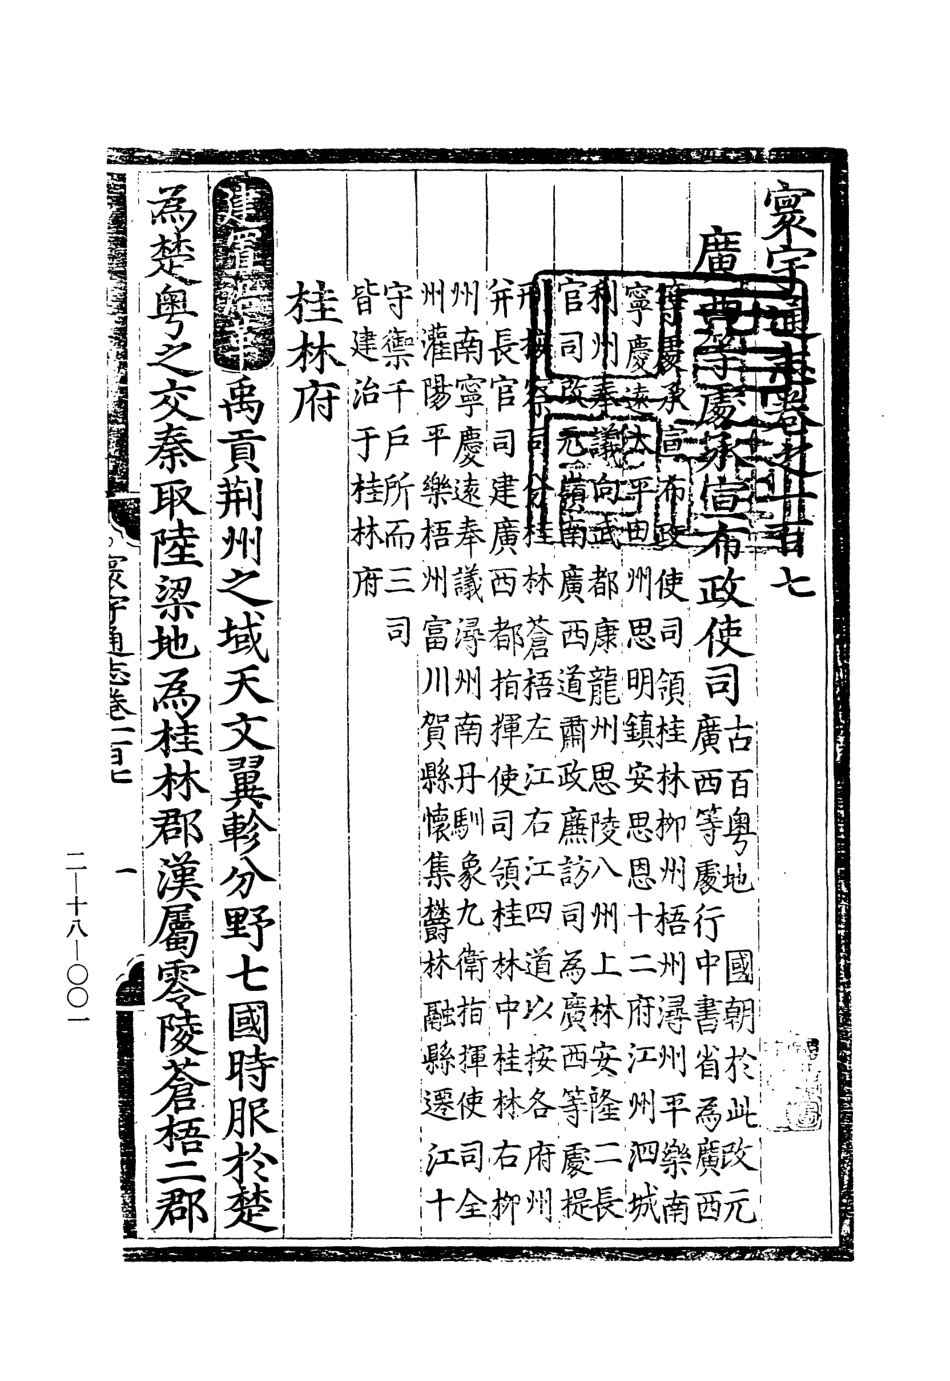 寰宇通志卷之一百七
廣西等處承宣布政使司
古百粤地　國朝於此改元
廣西等處行中書省為廣西
等處承宣布政使司領桂林柳州梧州潯州平樂南
寧慶遠太平田州思明鎮安思恩十二府江州泗城
利州奉議向武都康龍州思陵八州上林安隆二長
官司改元嶺南廣西道肅政廉訪司為廣西等處提
刑按察司分桂林蒼梧左江右江四道以按各府州
并長官司建廣西都指揮使司領桂林中桂林右柳
州南寧慶遠奉議潯州南丹馴象九衛指揮使司全
州灌陽平樂梧州富川賀縣懷集欝林融縣遷江十
守禦千戶所而三司
皆建治于桂林府
桂林府
建置沿革 禹貢荆州之域天文翼軫分野七國時服於楚
為楚粤之交秦取陸梁地為桂林郡漢屬零陵蒼梧二郡
寰宇通志卷一百七
一
二—十八—〇〇一